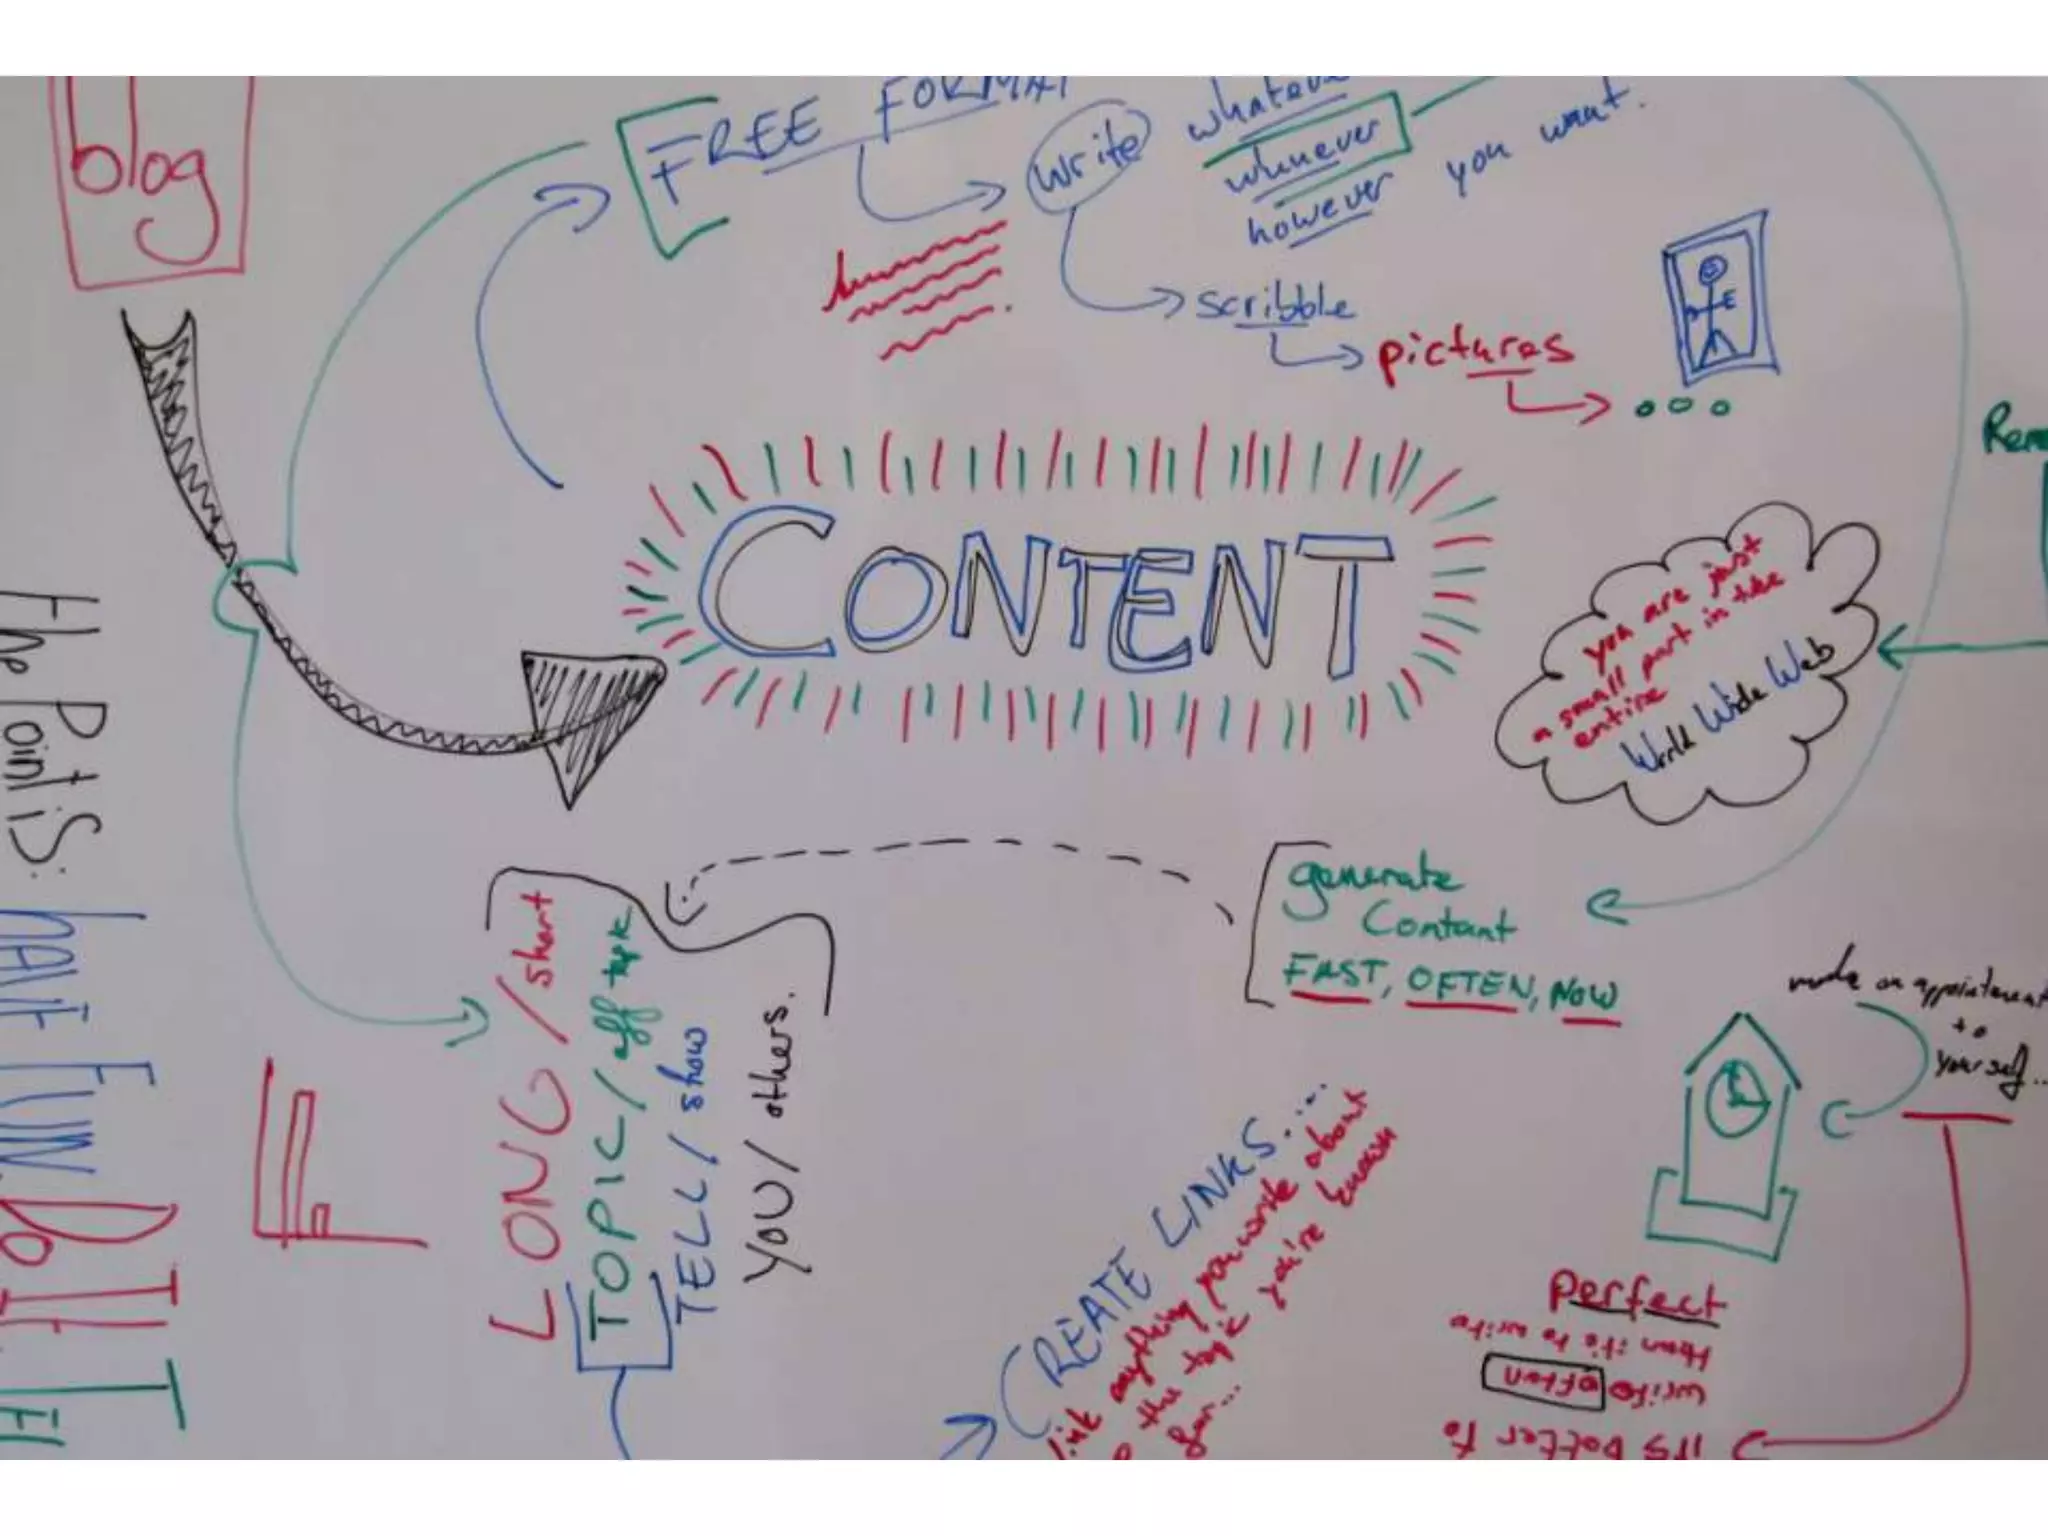 blog
FREE FORMAT
write
whatever
whenever
however
you want.
scribble
pictures
CONTENT
you are just
a small part in the
entire
World Wide Web
generate
Content
FAST, OFTEN, NOW
make an appointment
to
yourself...
LONG / short
TOPIC / off topic
TELL / show
YOU / others.
the Point is:
HAVE FUN.
Do IT
CREATE LINKS...
link anything you write about
the topic you're known
for...
it's better to
write often
than it is to write
perfect